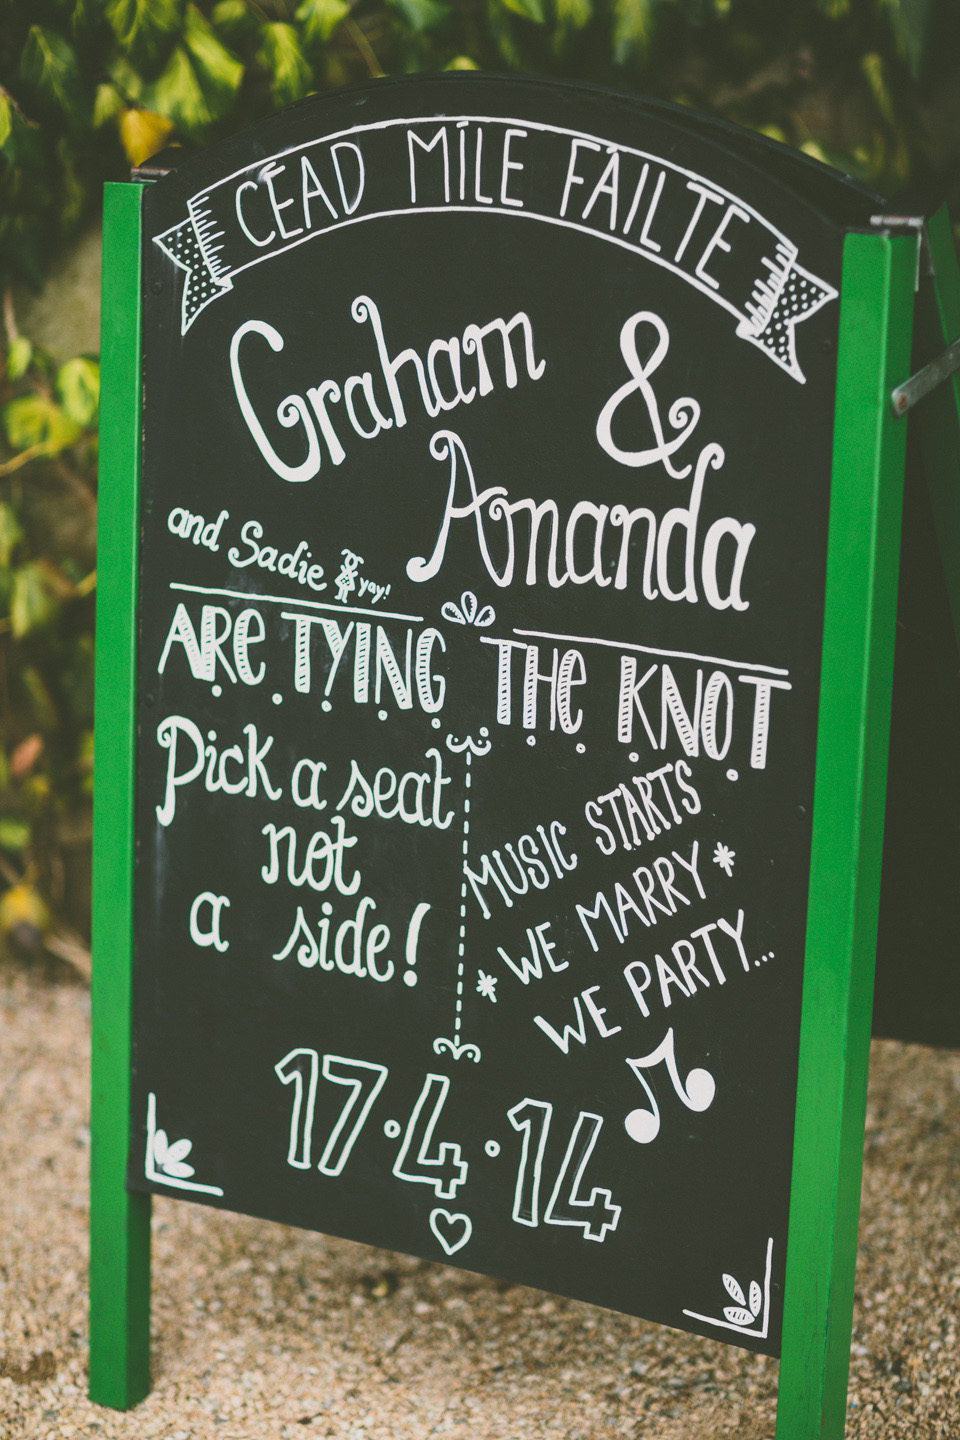 CÉAD MÍLE FÁILTE
Graham &
Amanda
and Sadie yay!
ARE TYING THE KNOT
Pick a seat
not
a side!
MUSIC STARTS
WE MARRY
WE PARTY...
17.4.14